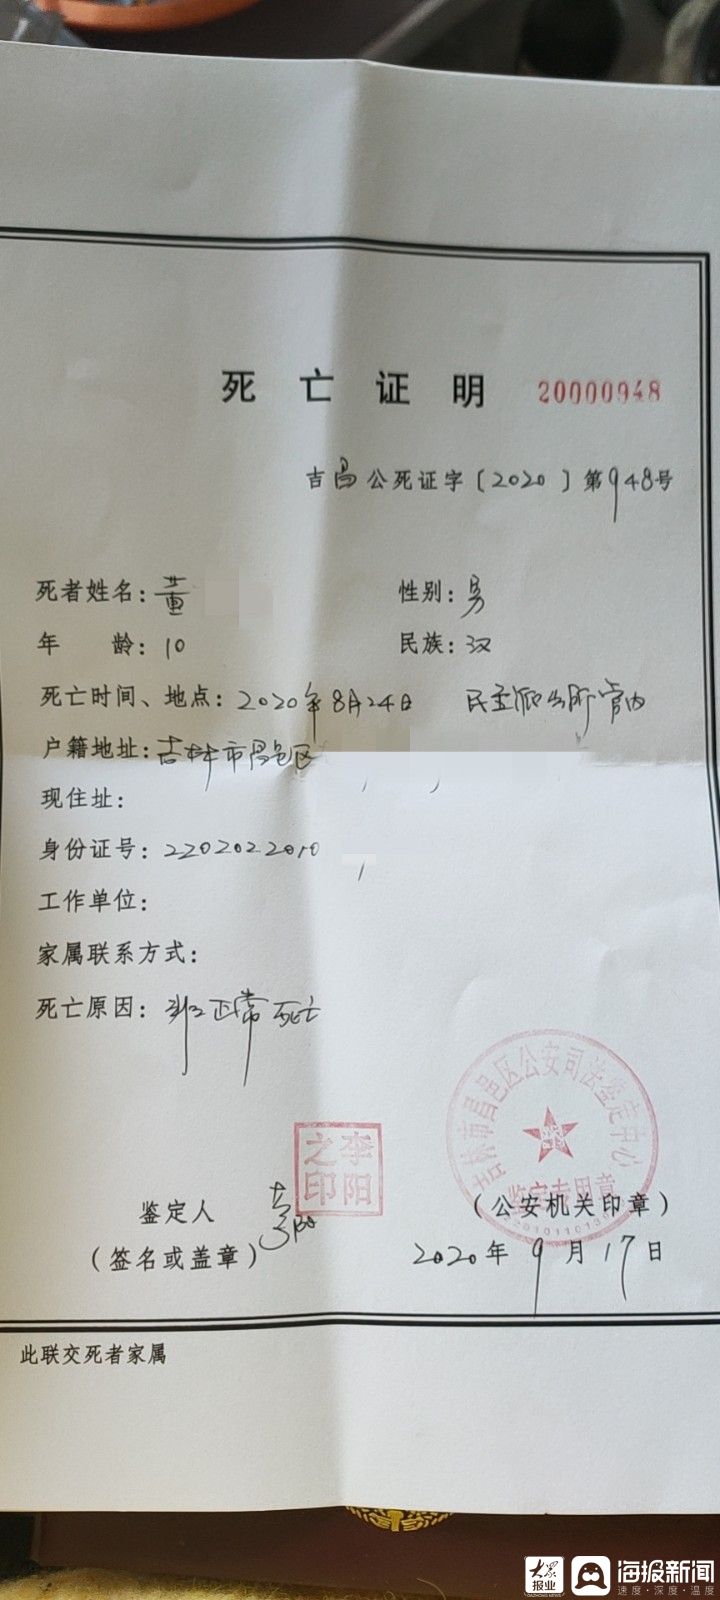 死亡证明 20000948
吉昌公死证字〔2020〕第948号
死者姓名：董 性别：男
年 龄：10 民族：汉
死亡时间、地点：2020年8月24日 民主派出所管内
户籍地址：吉林市昌邑区
现住址：
身份证号：2202022010
工作单位：
家属联系方式：
死亡原因：非正常死亡
吉林市昌邑区公安司法鉴定中心
鉴定专用章
李阳之印
鉴定人 （公安机关印章）
（签名或盖章） 2020年9月17日
此联交死者家属
大众报业 海报新闻
DAZHONG NEWS 速度·深度·温度